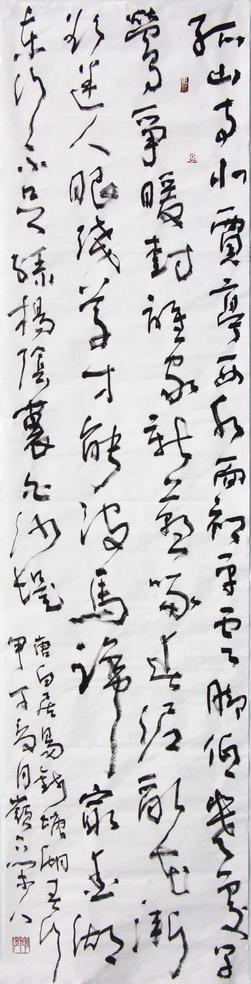 孤山寺北賈亭西水面初平雲腳低幾處早
鶯爭暖樹誰家新燕啄春泥亂花漸
欲迷人眼淺草才能沒馬蹄最愛湖
東行不足綠楊陰裏白沙堤
唐白居易錢塘湖春行
甲午 月